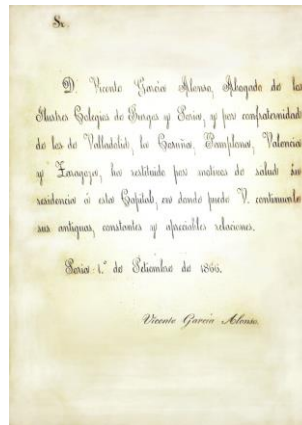 Sr.
D. Vicente García Alonso, Abogado de los
Ilustres Colegios de Burgos y Soria, y por confraternidad
de los de Valladolid, la Coruña, Pamplona, Valencia
y Zaragoza, ha restituido por motivos de salud su
residencia á esta Capital, en donde puede V. continuarle
sus antiguas, constantes y apreciables relaciones.
Soria 1.º de Setiembre de 1866.
Vicente García Alonso.